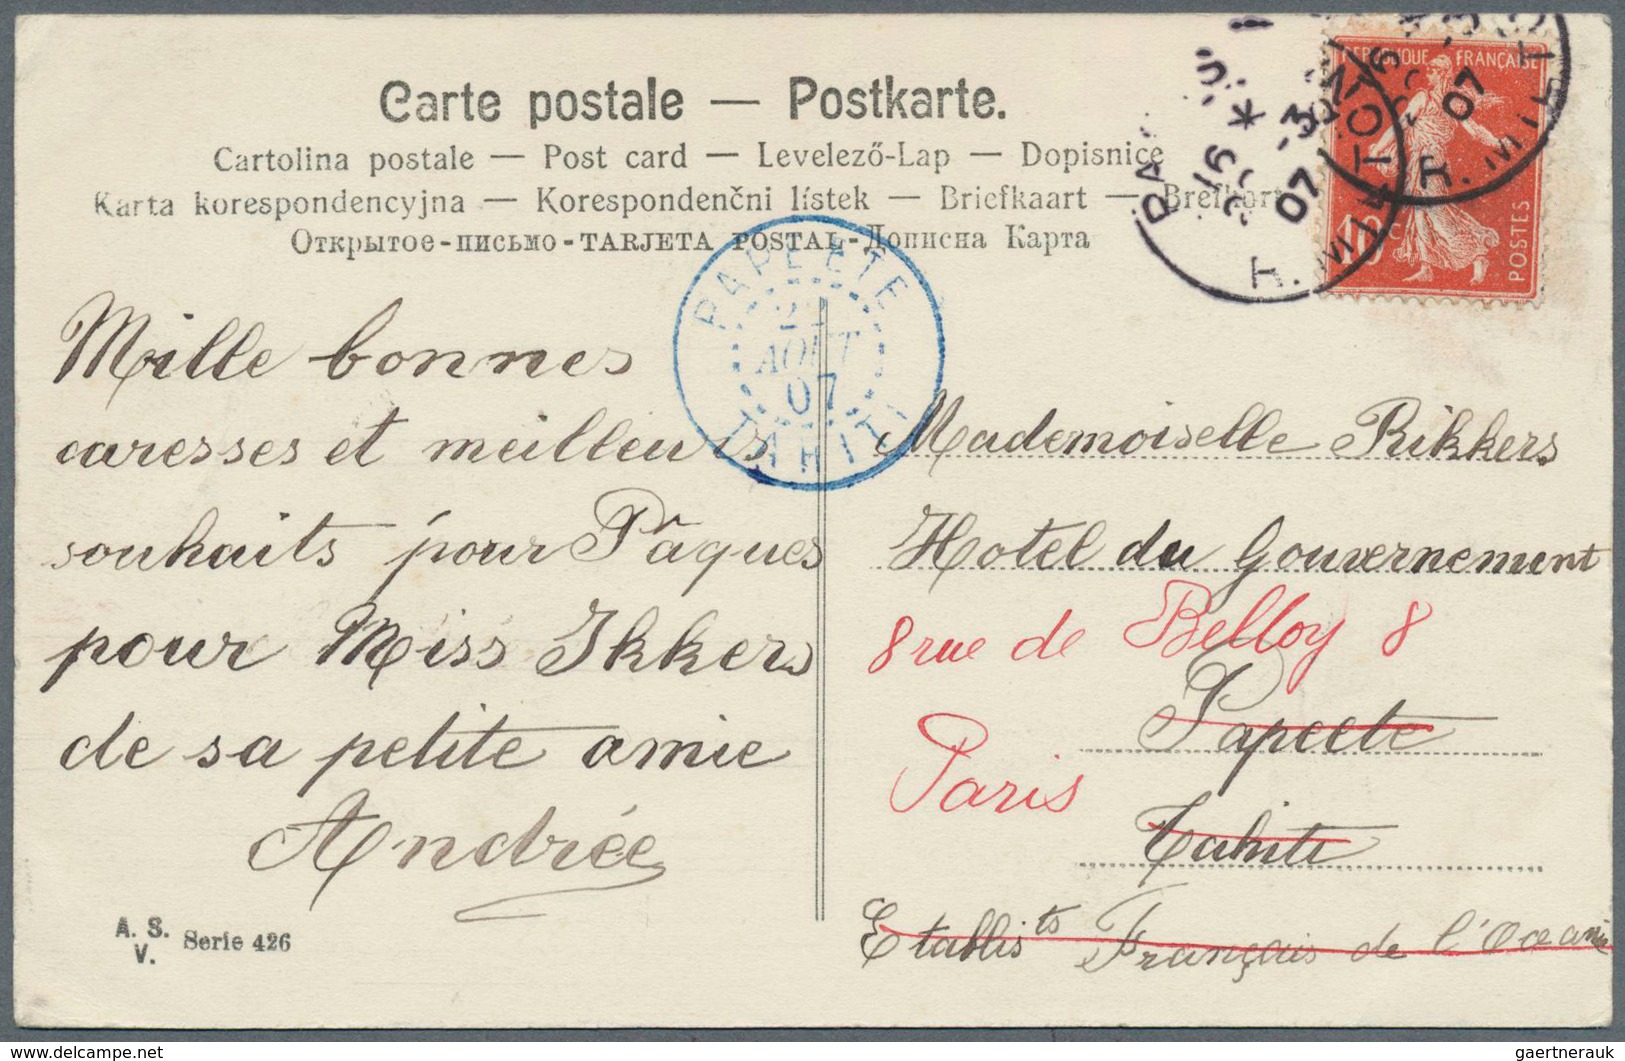 Carte postale — Postkarte.
Cartolina postale — Post card — Levelező-Lap — Dopisnice
Karta korespondencyjna — Korespondenční lístek — Briefkaart — Brefkort
Открытое-письмо-TARJETA POSTAL-Дописна Карта
REPUBLIQUE FRANÇAISE
10 c
POSTES
07
R. MI
07
R. MI
PAPEETE
AOUT
07
TAHITI
Mille bonnes
caresses et meilleurs
souhaits pour Pâques
pour Miss Ikkers
de sa petite amie
Andrée
A. S.
V. Serie 426
Mademoiselle Rikkers
Hotel du Gouvernement
8 rue de Belloy 8
Papeete
Paris
Tahiti
Etablis.ts Français de l'Océanie
gaertnerauk
www.delcampe.net